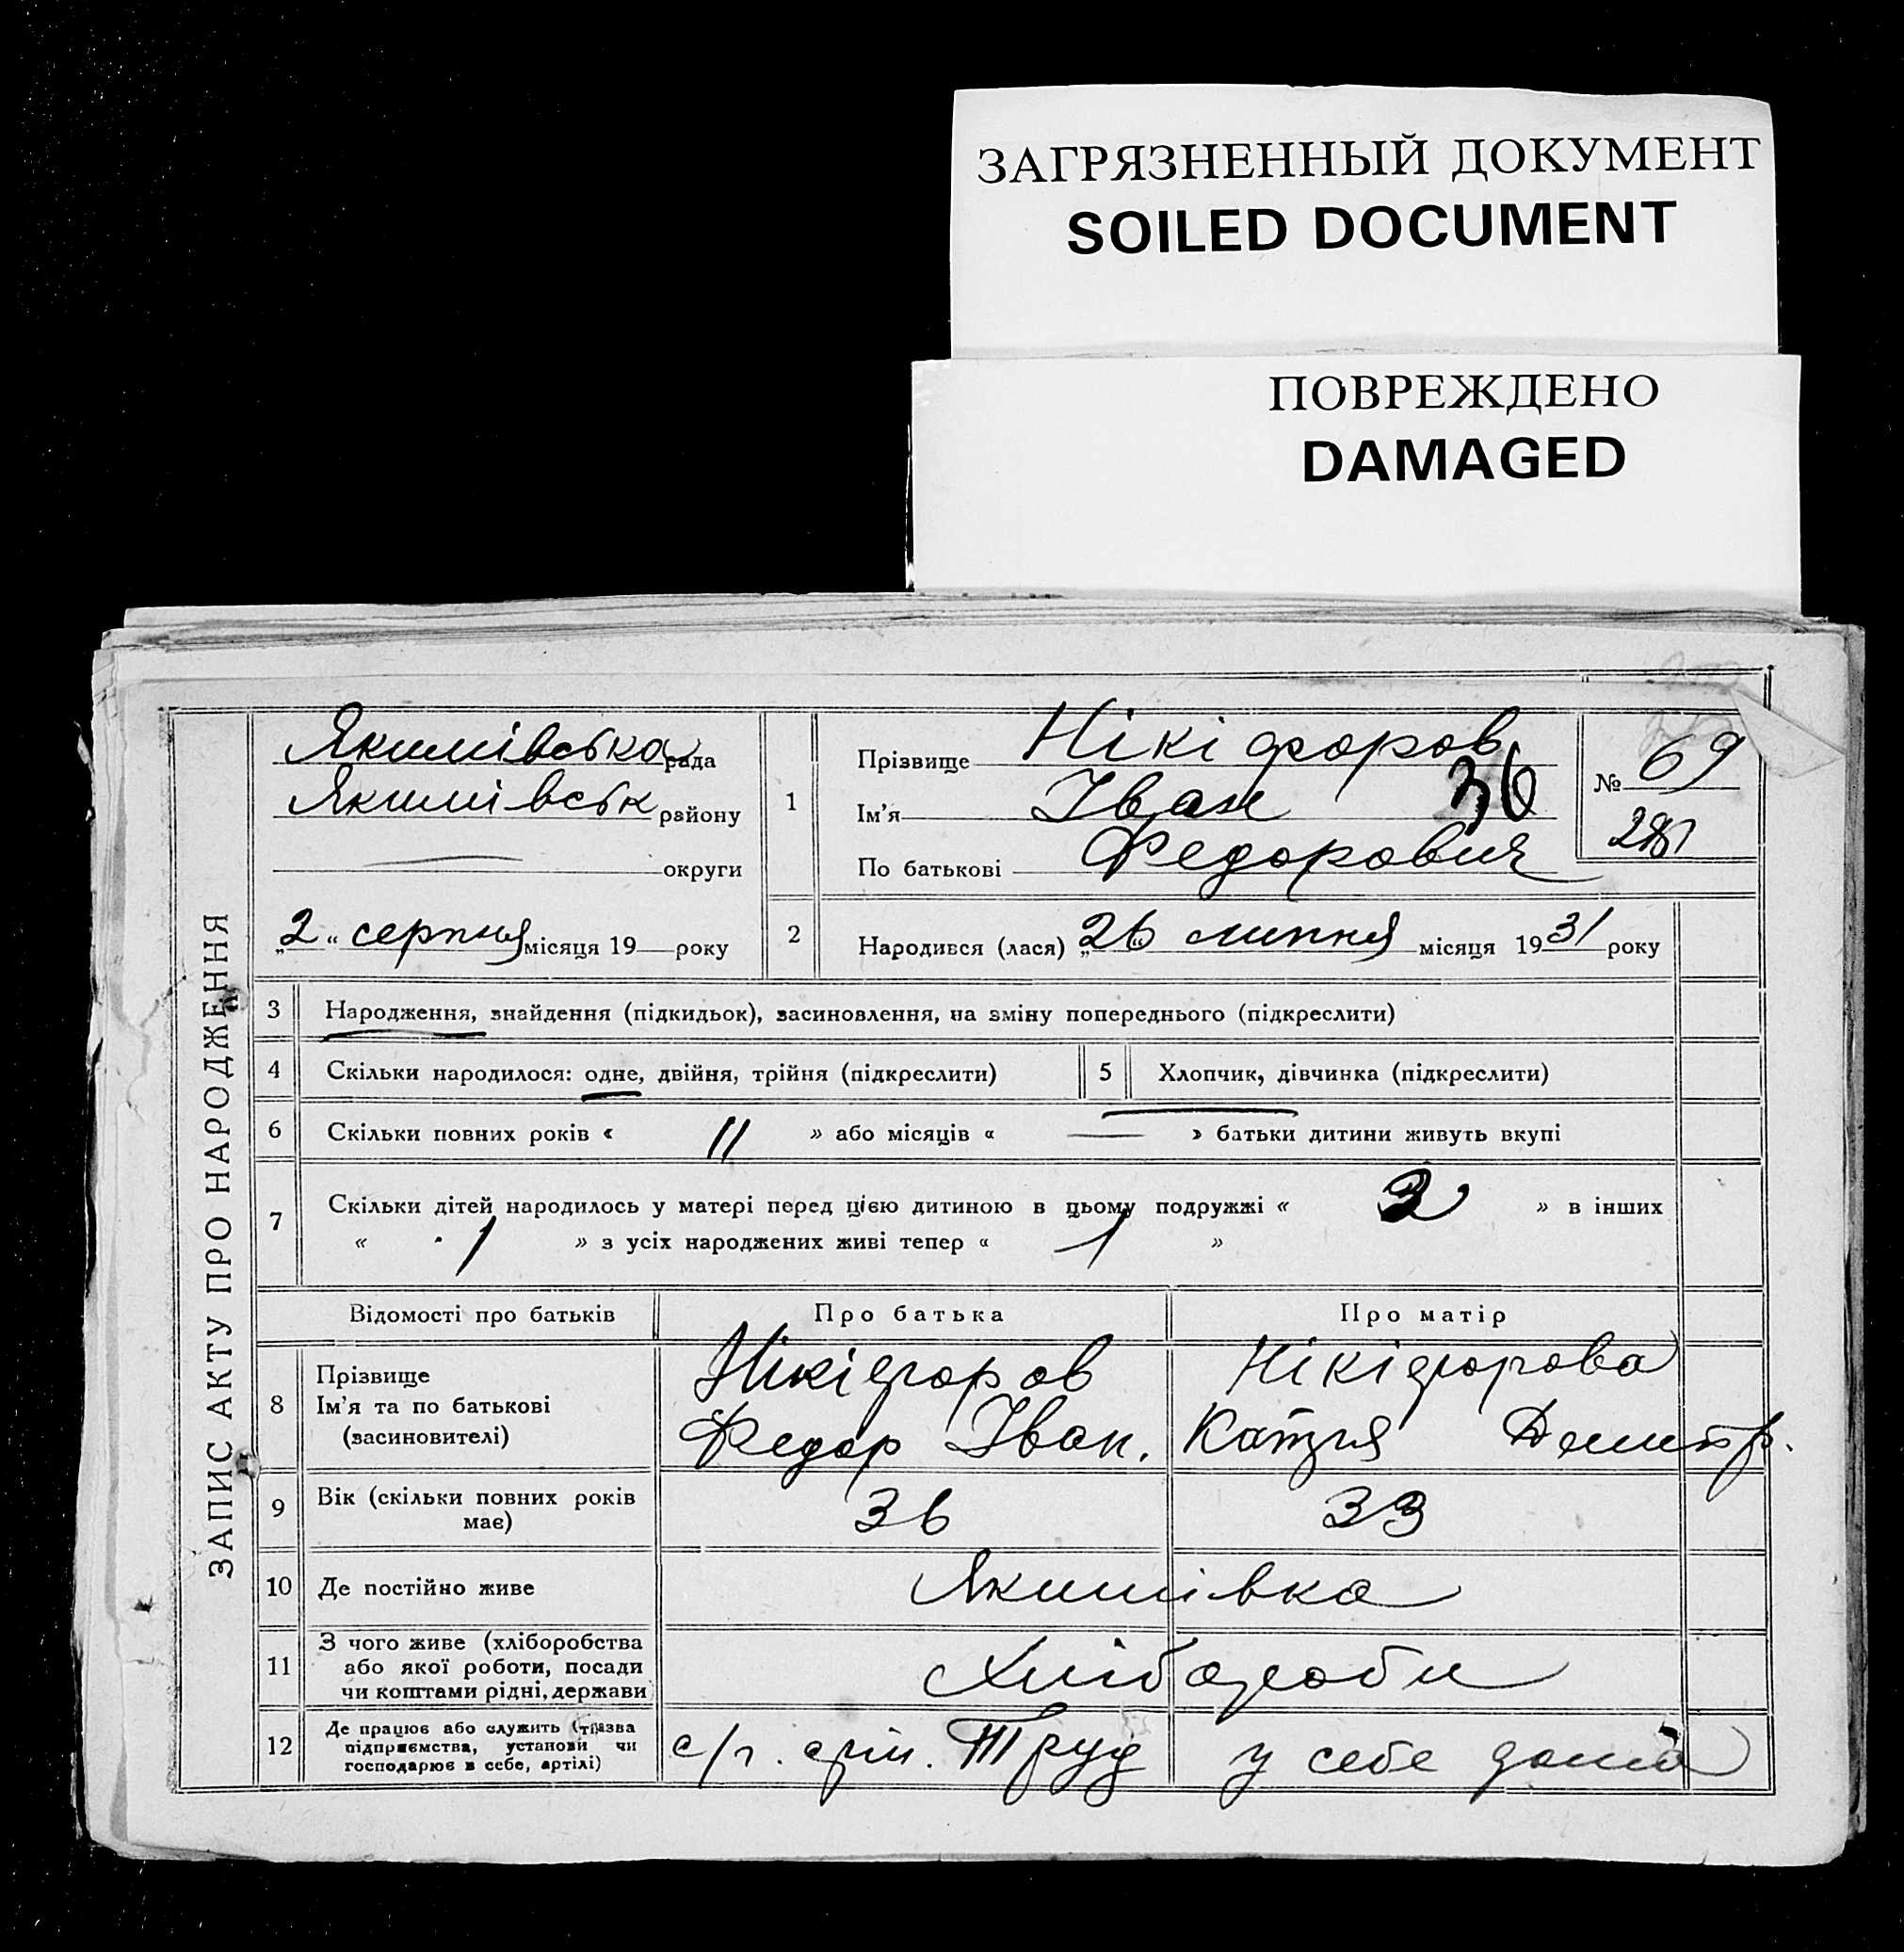 ЗАГРЯЗНЕННЫЙ ДОКУМЕНТ
SOILED DOCUMENT
ПОВРЕЖДЕНО
DAMAGED
ЗАПИС АКТУ ПРО НАРОДЖЕННЯ
Якимівська рада
Якимівськ району
округи
„2“ серпня місяця 19 року
1
Прізвище Нікіфоров
Ім'я Іван 36
По батькові Федорович
№ 69
2
Народився (лася) „26“ липня місяця 1931 року
3 Народження, знайдення (підкидьок), засиновлення, на зміну попереднього (підкреслити)
4 Скільки народилося: одне, двійня, трійня (підкреслити)
5 Хлопчик, дівчинка (підкреслити)
6 Скільки повних років « 11 » або місяців « — » батьки дитини живуть вкупі
7 Скільки дітей народилось у матері перед цією дитиною в цьому подружжі « » в інших
« 1 » з усіх народжених живі тепер « 1 »
Відомості про батьків Про батька Про матір
8 Прізвище
Ім'я та по батькові
(засиновителі)
Нікіфоров
Федор Іван.
Нікіфорова
Дмитр.
9 Вік (скільки повних років
має)
36 33
10 Де постійно живе Якимівка
11 З чого живе (хліборобства
або якої роботи, посади
чи коштами рідні, держави
Хлібороби
12 Де працює або служить (назва
підприємства, установи чи
господарює в себе, артілі)
с/г. Труд у себе дома